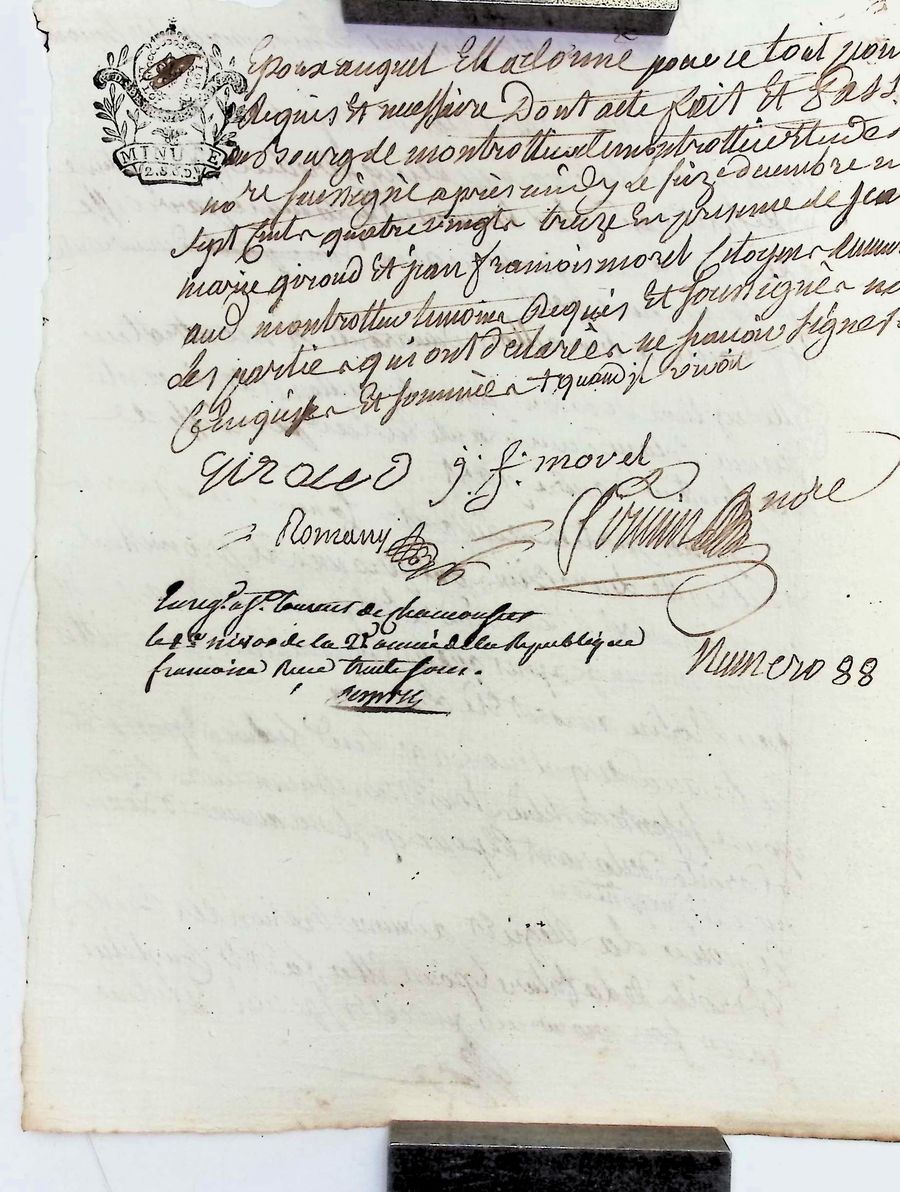 MINUTE
2. S. 6 DS
Epoux auquel Elle a donné pour ce tout pou
Requis Et necessaire Dont acte fait Et Pass
au bourg de montrottier Etude
no.re soussigné après midy Le seize decembre
sept Cents quatre vingts treize En presence de Jea
marie giroud Et jean françois morel Citoyens
aud montrottier temoins Requis Et soussignés
Les parties qui ont declarées ne savoir signer
Enquises Et sommées + quand il vivoit
GIROUD j: f: morel
no.re
Romany
Enreg.é a S.t Laurent de Chamousset
le 1.er nivos de la 2.e année de la Republique
francoise Recu trente sous.
Numero 88